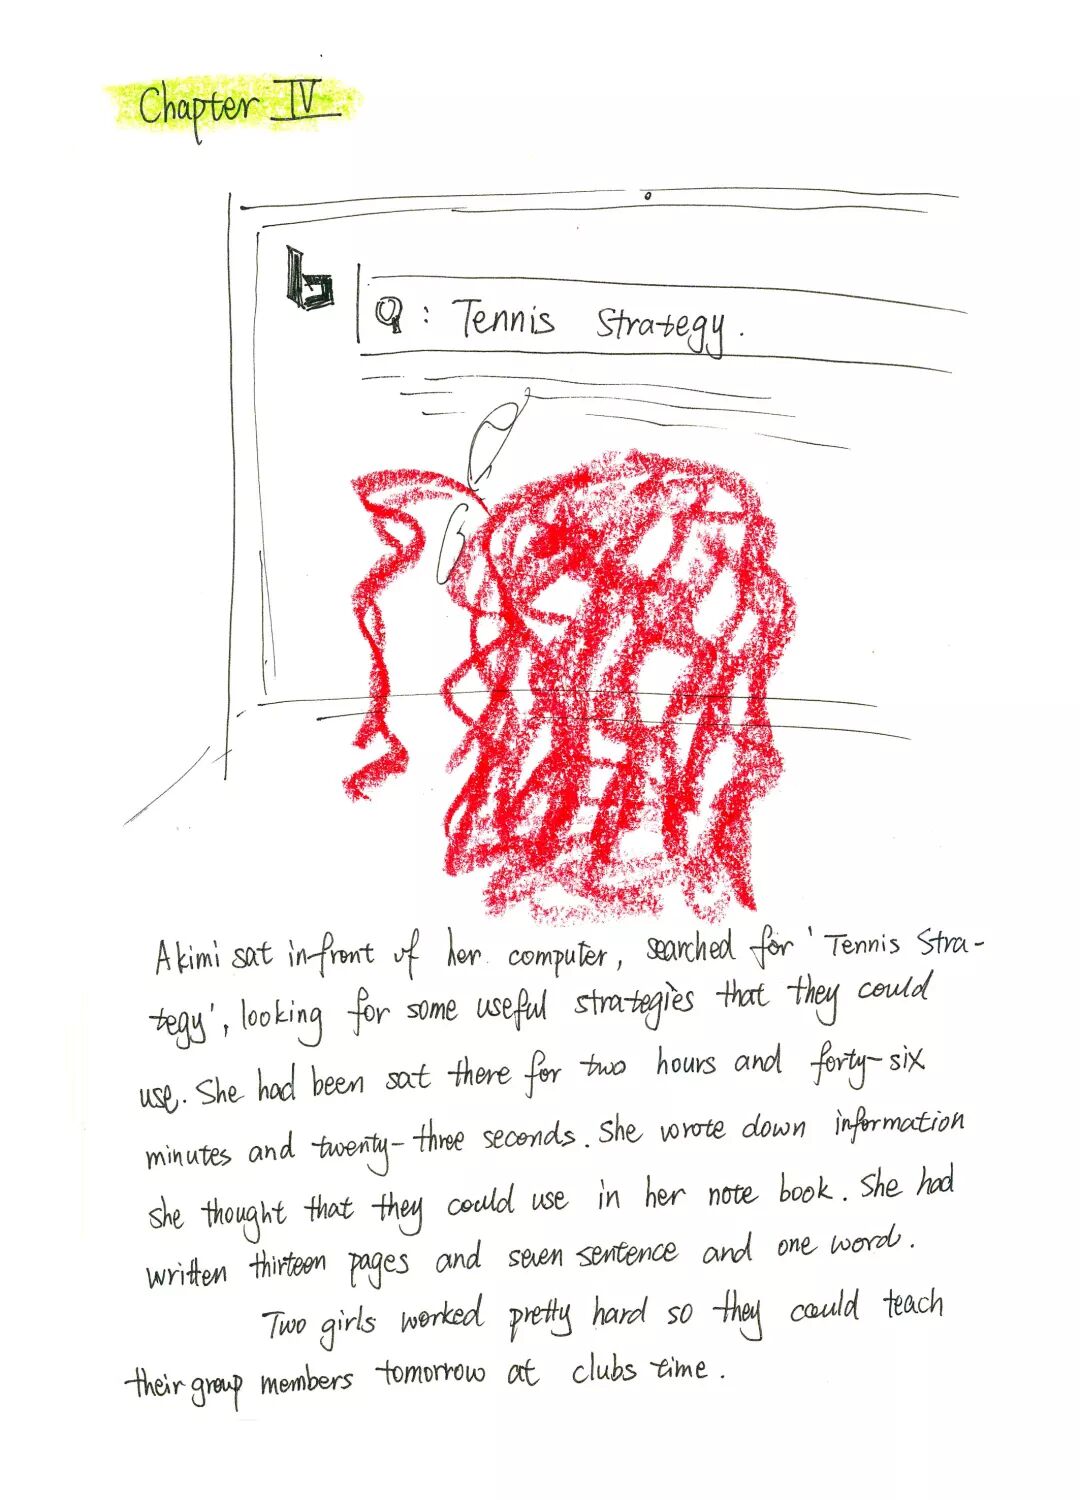 Chapter IV
b
Q : Tennis Strategy.
Akimi sat in front of her computer, searched for 'Tennis Stra-
tegy', looking for some useful strategies that they could
use. She had been sat there for two hours and forty-six
minutes and twenty-three seconds. She wrote down information
she thought that they could use in her note book. She had
written thirteen pages and seven sentence and one word.
Two girls worked pretty hard so they could teach
their group members tomorrow at clubs time.